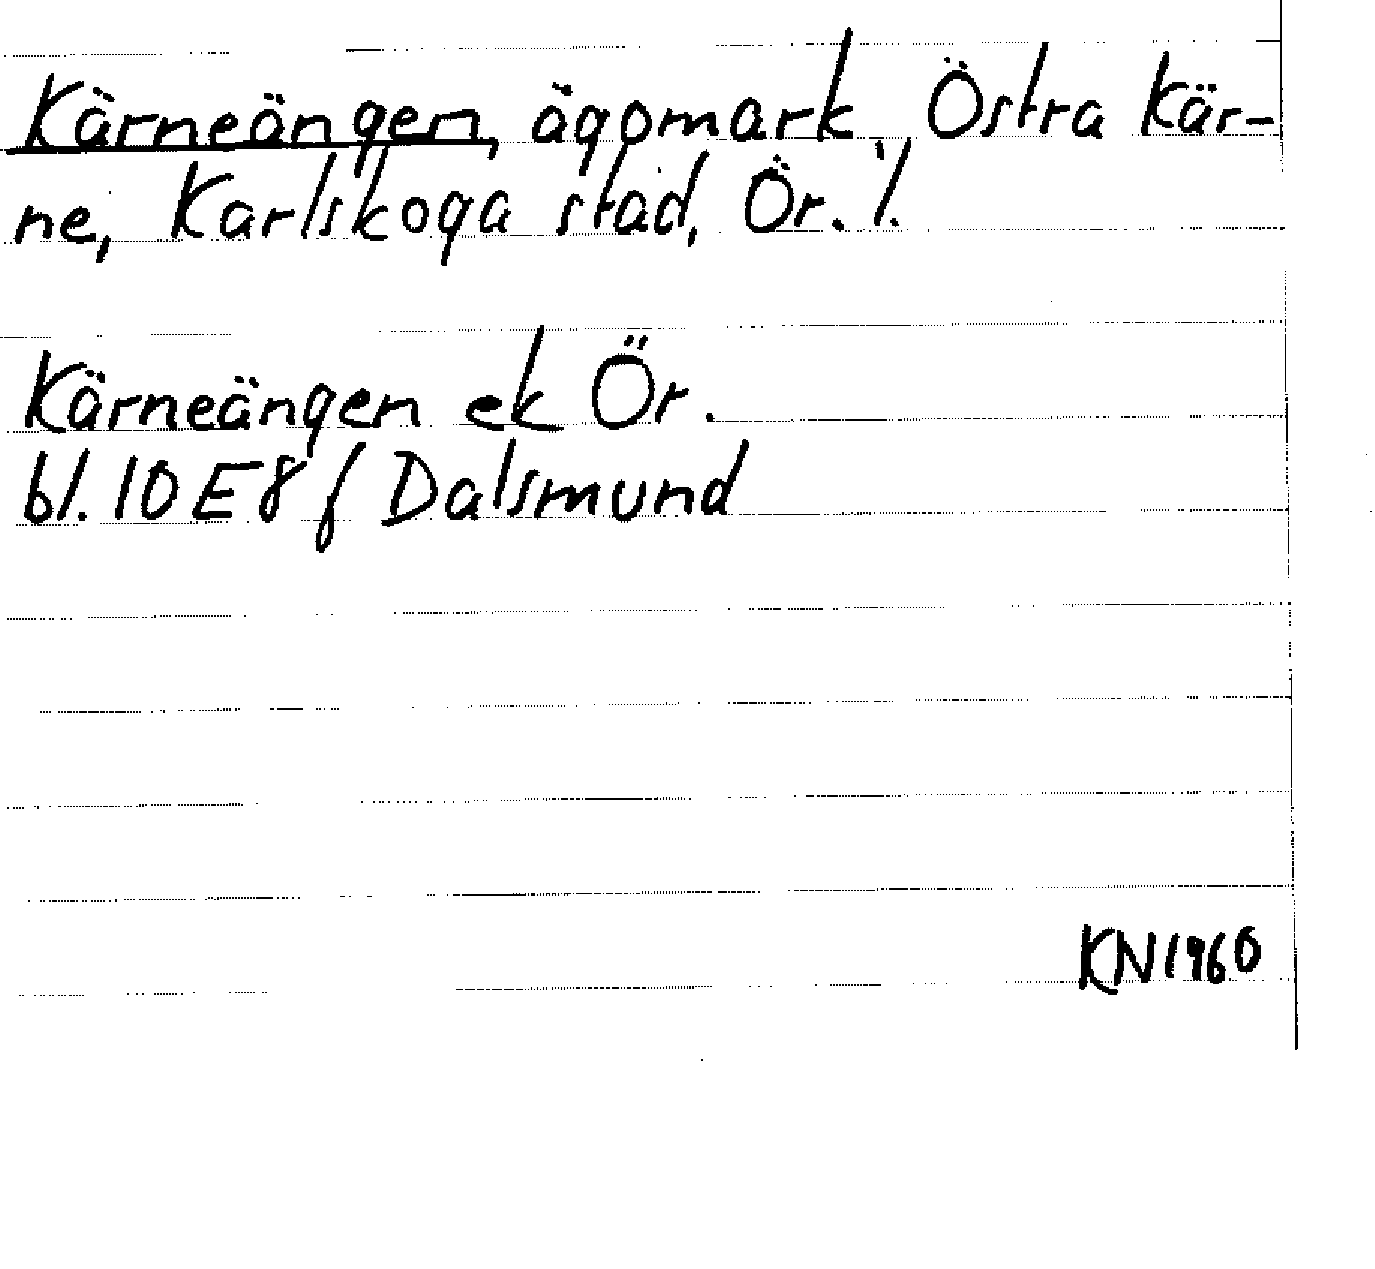 Kärneängen, ägomark, Östra Kär-
ne, Karlskoga stad, Ör. l.
Kärneängen ek Ör.
bl. 10E8f Dalsmund
KN1960